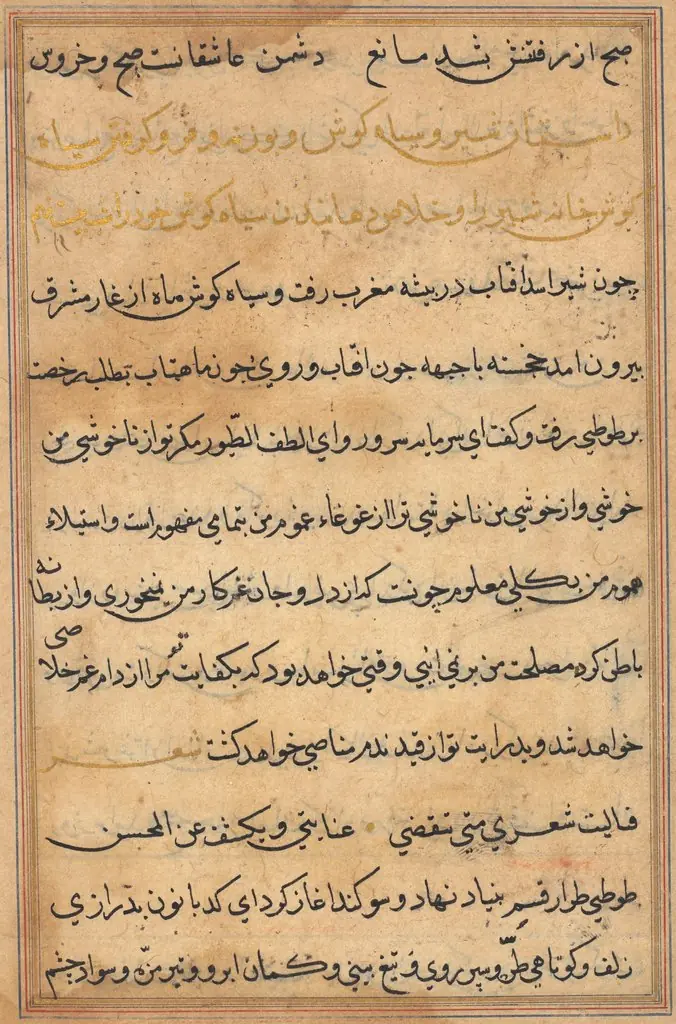 صبح از رفتنش بشد مانع دشمن عاشقانت صبح و خروس
داستان شیر و سیاه کوش و بوزنه و فرو کرفتن سیاه
کوش خانه شیر را و خلاص دهانیدن سیاه کوش خود را
چون شیر اسد افتاب در بیشه مغرب رفت و سیاه کوش ماه از غار مشرق
بیرون امد خجسته با جبهه جون افتاب و روی جون ماهتاب بطلب رخصت
بر طوطی رفت و کفت ای سرمایه سرور و ای الطف الطیور مکر تو از ناخوشی من
خوشی و از خوشی من ناخوشی ترا از غوغاء غموم من بتمامی مفهوم است و استیلاء
هموم من بکلی معلوم چونست که از دل و جان غم کار من نمیخوری و از بطانه
باطن کرد مصلحت من بر نمی ایی وقتی خواهد بود که بکفایت تو مرا از دام غم خلاصی
خواهد شد و بدرایت تو از قید ندم مناصی خواهد کشت شعر
فالیت شعری متی تنقضی عنایتی و یکشف عن المحسن
طوطی طوار قسم بنیاد نهاد و سوکند اغاز کرد ای کدبانون بدرازی
زلف و کوتاهی طرّه و سپر روی و تیغ بینی و کمان ابرو و تیر مزّه و سواد چشم